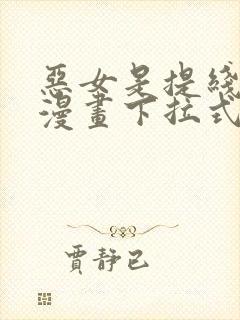 惡女是提綫
漫畫下拉式
賈靜已